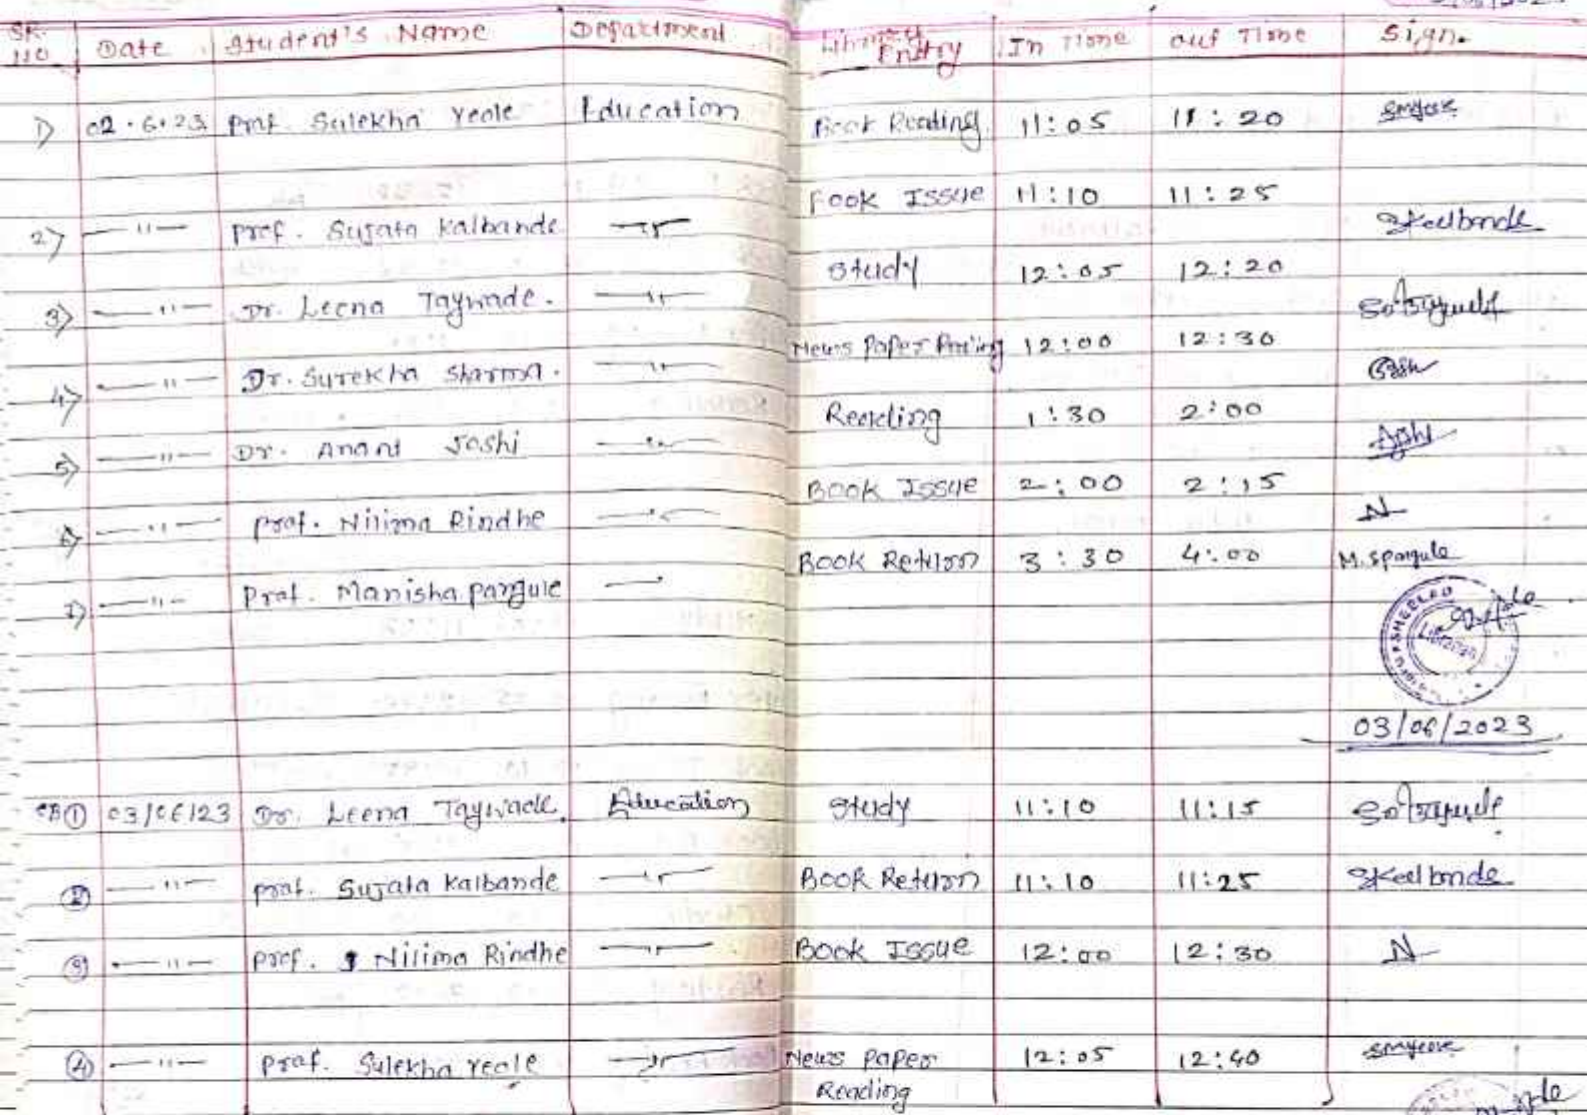 SR. NO Date Student's Name Department Library Entry In Time Out Time Sign.
1) 02.6.23 Prof. Sulekha Yeole Education Book Reading 11:05 11:20
2) —"— Prof. Sujata Kalbande —"— Book Issue 11:10 11:25 Skalbande
3) —"— Dr. Leena Taywade. —"— Study 12:05 12:20
4) —"— Dr. Surekha Sharma. —"— News Paper 12:00 12:30
5) —"— Dr. Anant Joshi —"— Reading 1:30 2:00
6) —"— Prof. Nilima Rindhe —"— Book Issue 2:00 2:15 N
7) —"— Prof. Manisha Pargule —"— Book Return 3:30 4:00 M.Spargule
Librarian
03/06/2023
① 03/06/23 Dr. Leena Taywade. Education Study 11:10 11:15
② —"— Prof. Sujata Kalbande —"— Book Return 11:10 11:25 Skalbande
③ —"— Prof. Nilima Rindhe —"— Book Issue 12:00 12:30 N
④ —"— Prof. Sulekha Yeole —"— News Paper 12:05 12:40
Reading